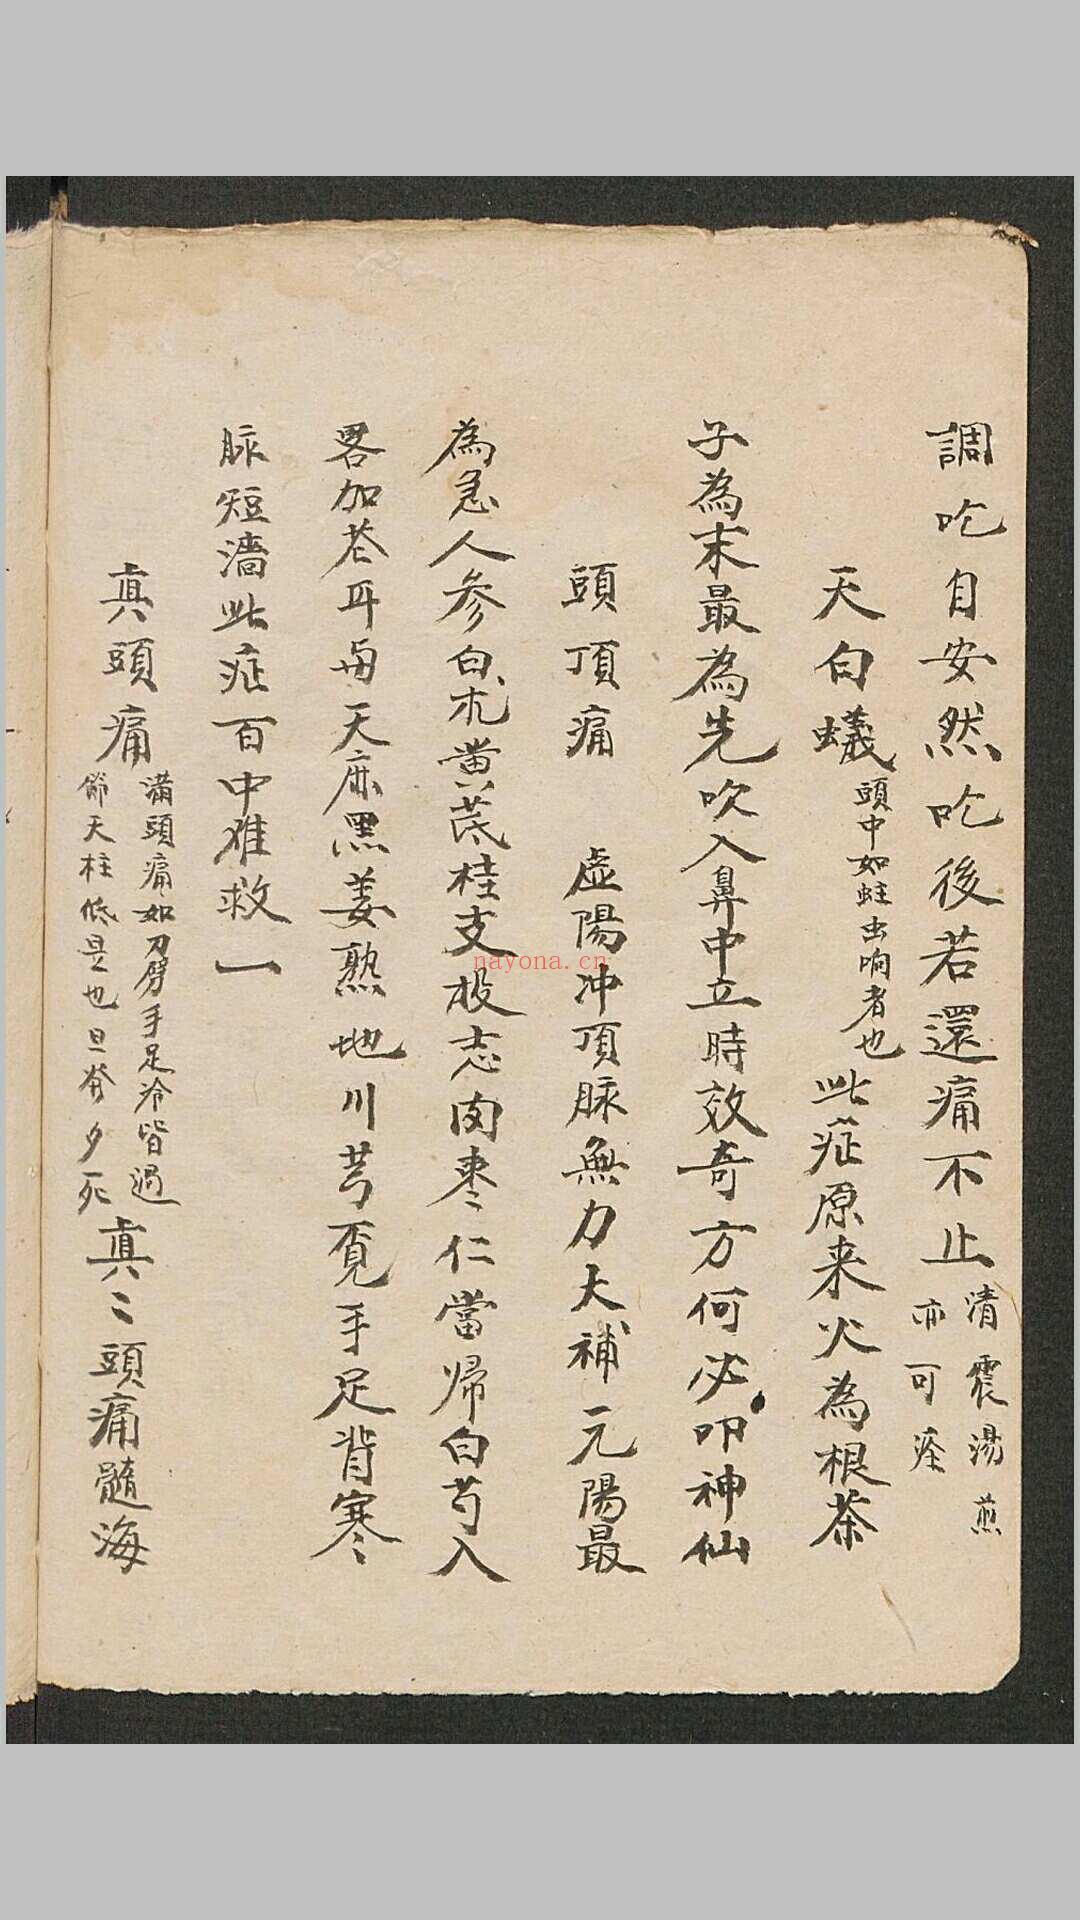 調吃自安然吃後若還痛不止
清震湯煎
亦可痊
天白蟻
頭中如蛀虫响者也
此症原来火為根茶
子為末最為先吹入鼻中立時效奇方何必叩神仙
頭頂痛 虛陽冲頂脉無力大補元陽最
為急人參白朮黃芪桂支投志肉棗仁當帰白芍入
畧加苍耳与天麻黑姜熟地川芎覔手足背寒
脉短濇此症百中难救一
真頭痛
滿頭痛如刀劈手足冷皆過
節天柱低是也旦發夕死
真〻頭痛髓海
nayona.cn